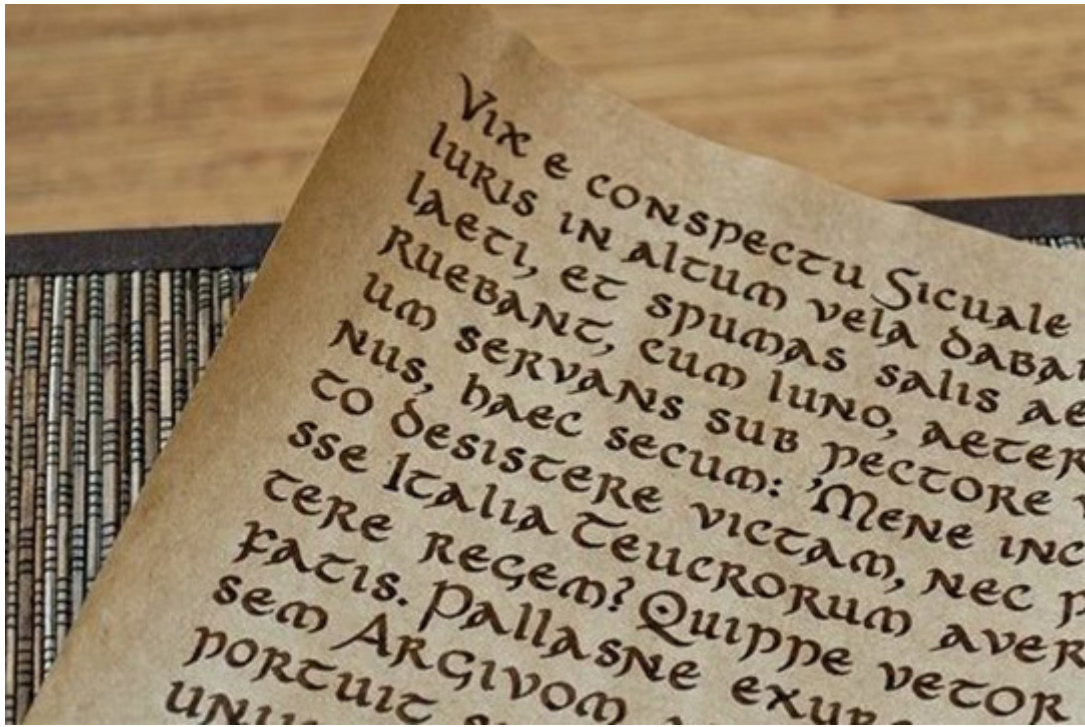 Vix e conspectu Sicuale
luris in altum vela daba
laeti, et spumas salis ae
ruebant, cum Iuno, aeter
um servans sub pectore
nus, haec secum: 'Mene inc
to desistere victam, nec p
sse Italia Teucrorum aver
tere regem? Quippe vetor
fatis. Pallasne exur
sem Argivom
portuit s